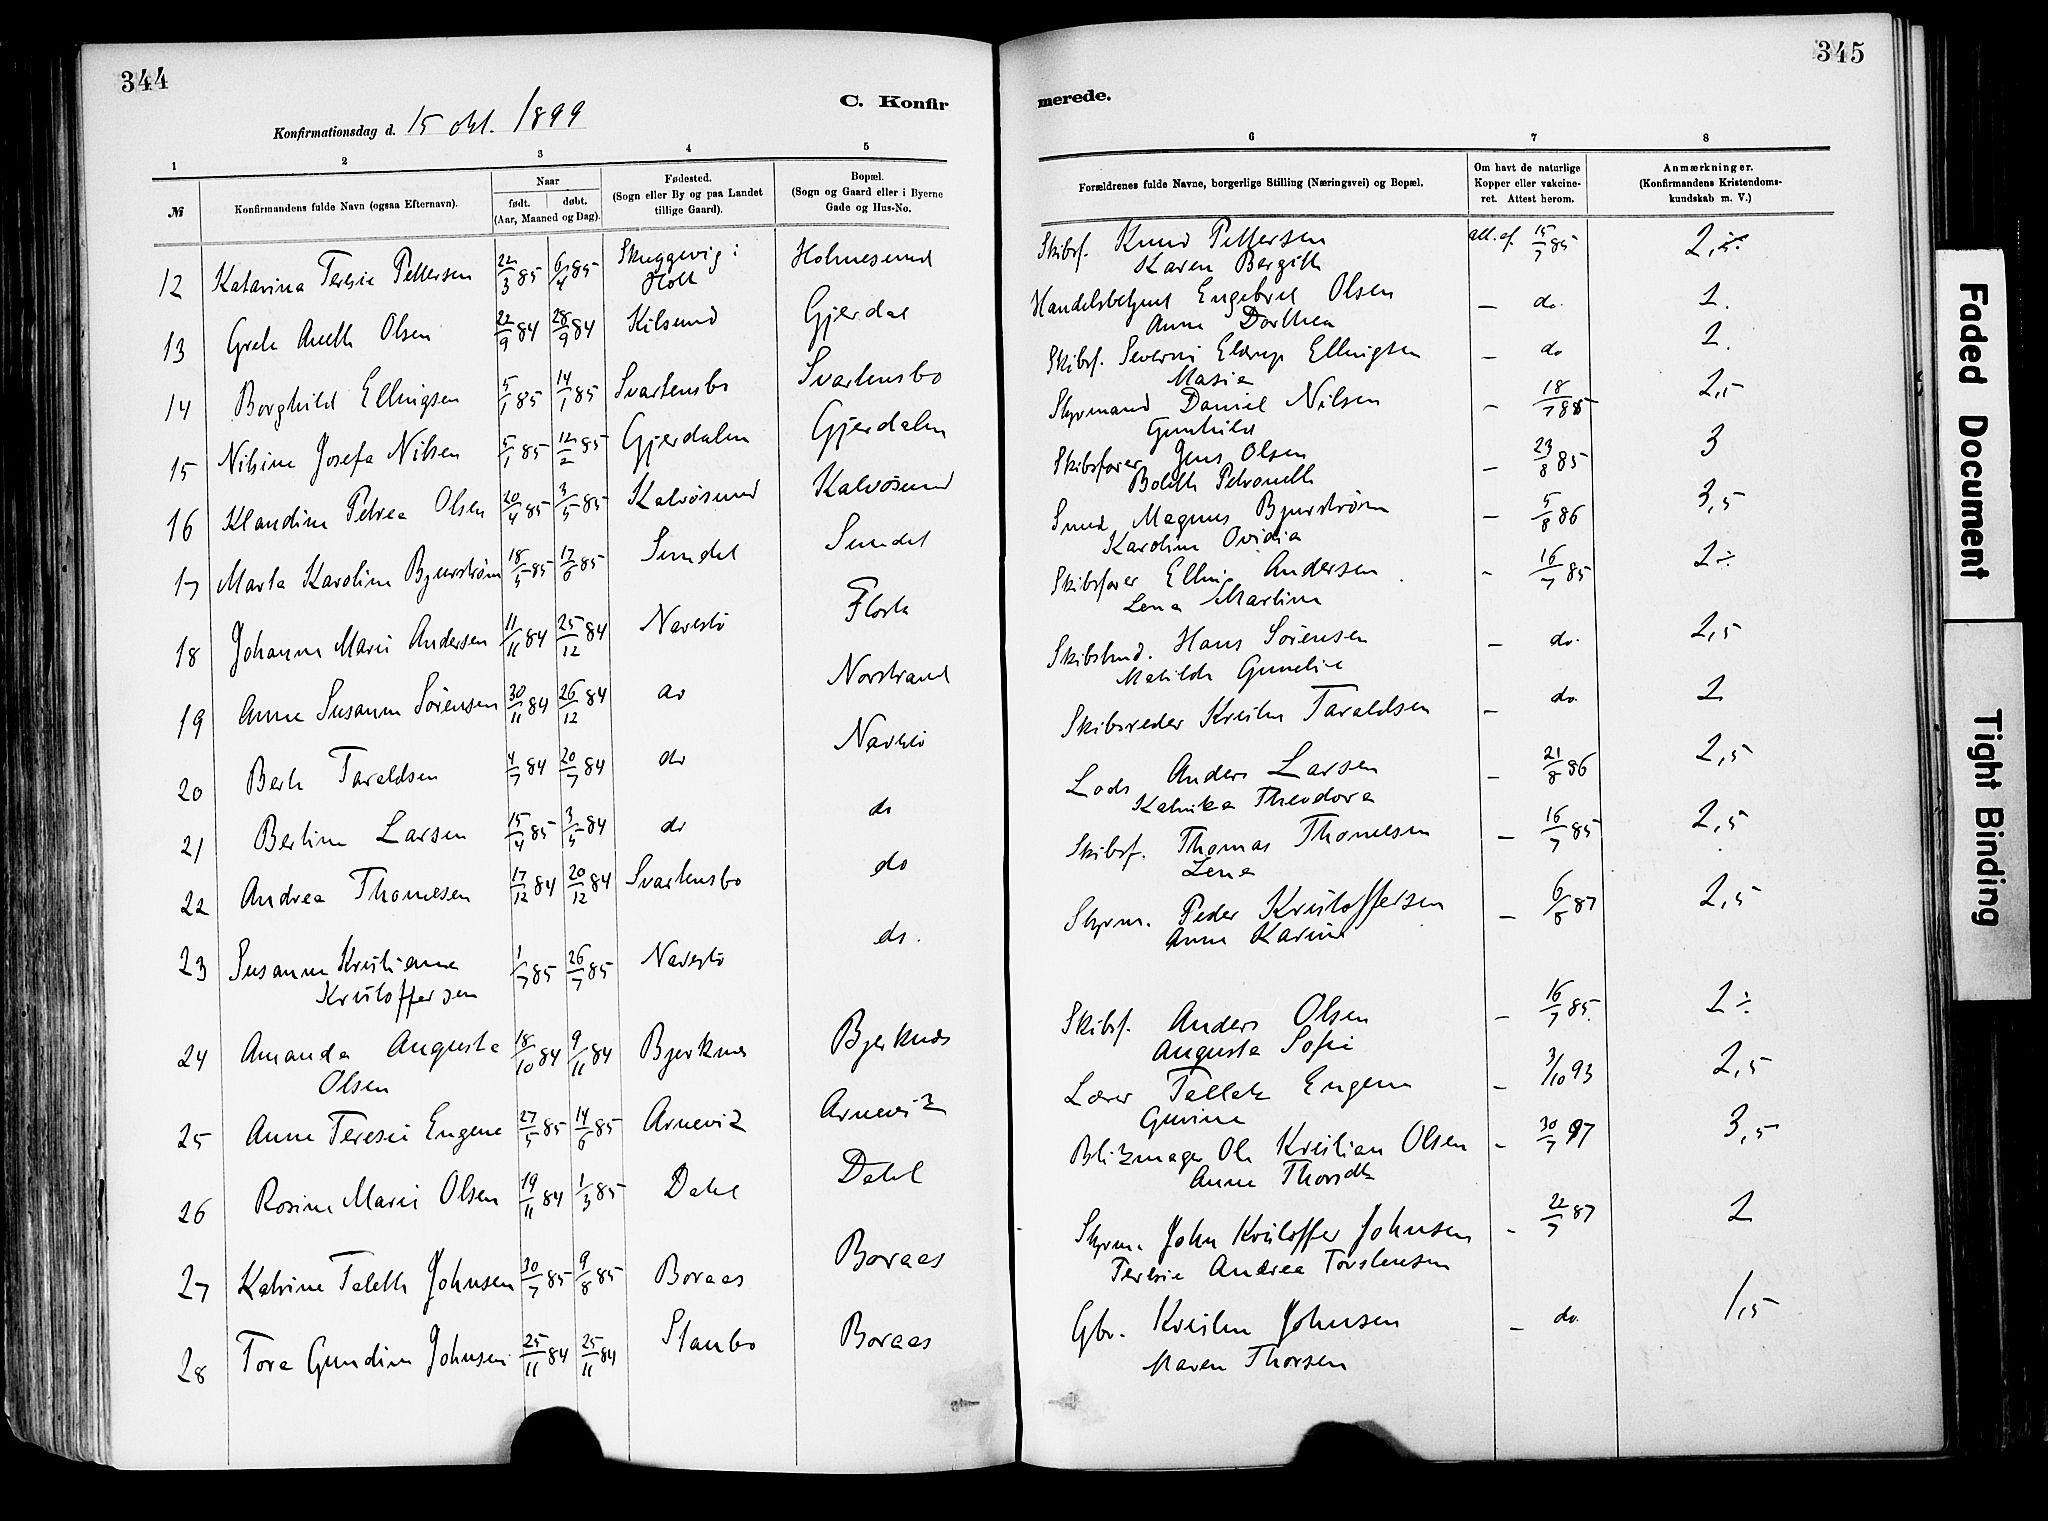 344
C. Konfir
Konfirmationsdag d. 15 okt. 1899
1 2 3 4 5
№ Konfirmandens fulde Navn (ogsaa Efternavn). Naar født. døbt. (Aar, Maaned og Dag). Fødested. (Sogn eller By og paa Landet tillige Gaard). Bopæl. (Sogn og Gaard eller i Byerne Gade og Hus-No.
12 Katarina Teresie Pettersen 22/3 85 6/4 85 Skuggevig i Holt Holmesund
13 Grete Aneth Olsen 22/9 84 28/9 84 Kilsund Gjerdal
14 Borghild Ellingsen 5/1 85 14/1 85 Svartensbo Svartensbo
15 Nilsine Josefa Nilsen 5/1 85 12/2 85 Gjerdalen Gjerdalen
16 Klaudine Petrea Olsen 20/4 85 3/5 85 Kalvøsund Kalvøsund
17 Marta Karoline Bjurstrøm 18/5 85 17/6 85 Sundet Sundet
18 Johanne Marie Andersen 11/11 84 25/12 84 Navestø Flosta
19 Anne Susanne Sørensen 30/11 84 26/12 84 do Norstrand
20 Berte Taraldsen 4/7 84 20/7 84 do Navestø
21 Bertine Larsen 15/4 85 3/5 84 do do
22 Andrea Thomesen 17/12 84 20/12 84 Svartensbo do
23 Susanne Kristiane Kristoffersen 1/7 85 26/7 85 Navestø do.
24 Amanda Augusta Olsen 18/10 84 9/11 84 Bjerknes Bjerknes
25 Anne Teresie Eugene 27/5 85 14/6 85 Arnevik Arnevik
26 Rosine Marie Olsen 19/11 84 1/3 85 Dahl Dahl
27 Katrine Taleth Johnsen 30/7 85 9/8 85 Boraas Boraas
28 Tora Gundine Johnsen 25/11 84 25/11 84 Staubo Boraas
345
merede.
6 7 8
Forældrenes fulde Navne, borgerlige Stilling (Næringsvei) og Bopæl. Om havt de naturlige Kopper eller vakcineret. Attest herom. Anmærkninger. (Konfirmandens Kristendomskundskab m. V.)
Skibsf. Knud Pettersen att. af. 15/7 85 2,5
Karen Bergith
Handelsbetjent Engebret Olsen — do. 2.
Anne Dorthea
Skibsf. Severin Elerup Ellingsen — do 2.
Masia
Styrmand Daniel Nilsen — 18/7 85 2,5
Gunhild
Skibsfører Jens Olsen — 23/8 85 3
Boleth Petronelle
Smed Magnus Bjurstrøm — 5/8 86 3,5
Karoline Ovidia
Skibsfører Elling Andersen — 16/7 85 2 ÷
Lena Martine
Skibstmd. Hans Sørensen — do. 2,5
Matilde Guneline
Skibsreder Kristen Taraldsen — do. 2
Lods Anders Larsen — 21/8 86 2,5
Katrika Theodora
Skibsf. Thomas Thomesen — 16/7 85 2,5
Lena
Styrm. Peder Kristoffersen — 6/8 87 2,5
Anne Karine
Skibsf. Anders Olsen — 16/7 85. 2 ÷
Augusta Sofie
Lærer Tellef Eugene — 3/10 93 2,5
Gurine
Blikmager Ole Kristian Olsen — 30/7 97 3,5
Anne Thorsdtr
Styrm. John Kristoffer Johnsen — 22/7 87 2
Teresie Andrea Torstensen
Gbr. Kristen Johnsen — do. 1,5
Maren Thorsen
Faded Document
Tight Binding